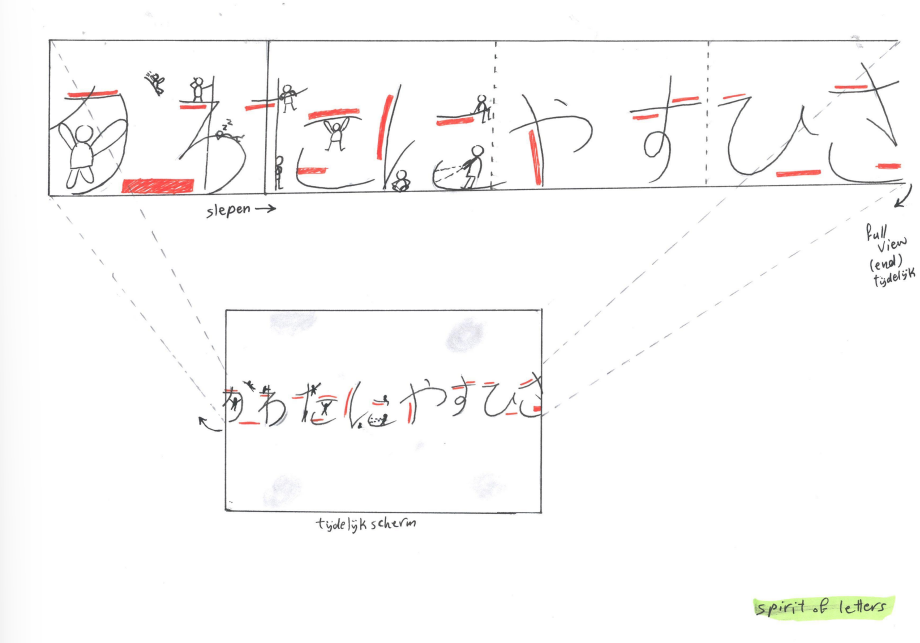 やすひさ
zz
slepen →
full
view
(end)
tijdelijk
やすひさ
tijdelijk scherm
spirit of letters